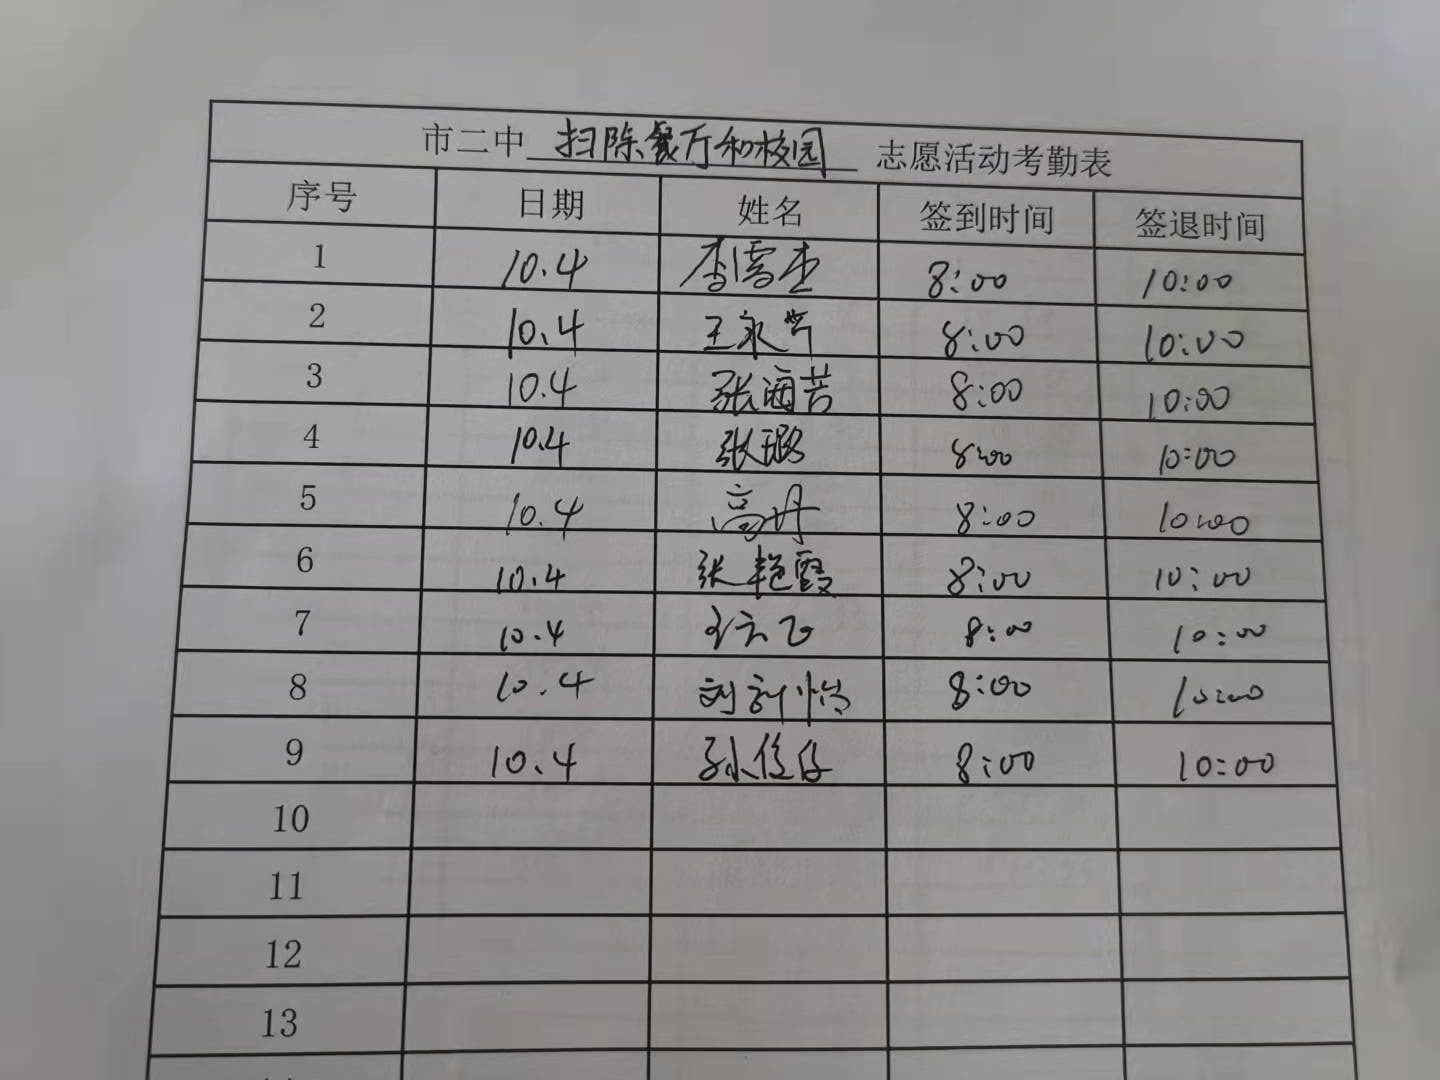 市二中 扫除餐厅和校园 志愿活动考勤表
序号 日期 姓名 签到时间 签退时间
1 10.4 李雪杰 8:00 10:00
2 10.4 王永芳 8:00 10:00
3 10.4 张海芸 8:00 10:00
4 10.4 张璐 8:00 10:00
5 10.4 高丹 8:00 10:00
6 10.4 张艳霞 8:00 10:00
7 10.4 8:00 10:00
8 10.4 8:00 10:00
9 10.4 8:00 10:00
10
11
12
13